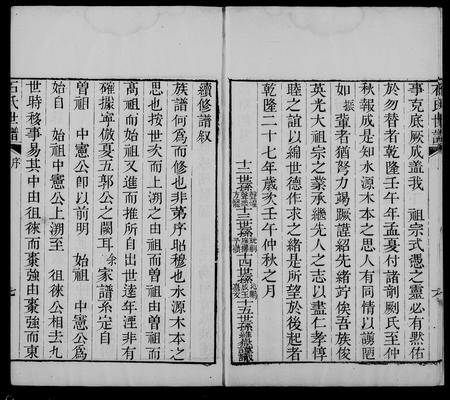 事克底厥成蓋我　祖宗式憑之靈必有默佑
於勿替者乾隆壬午年孟夏付諸剞劂氏至仲
秋報成是知水源木本之思人有同情以謭陋
如振輩者猶努力竭蹶謹紹先緒竚俟吾族俊
英光大祖宗之業承繼先人之志以盡仁孝惇
睦之誼以綿世德作求之緒是所望於後起者
乾隆二十七年歲次壬午仲秋之月
十二世孫
十三世孫
十四世孫
十五世孫
續修譜叙
族譜何為而修也非第序昭穆也水源木本之
思也按世次而上溯之由祖而曾祖而
高祖而始祖又進而推所自出世遠年湮非有
確據寧倣夏五郭公之闕耳余家譜系定自
曾祖　中憲公即以前明　始祖　中憲公為
始自　始祖中憲公上溯至　徂徠公相去九
世時移事易其中由徂徠而棗強由棗強而東
石氏世譜
序
七